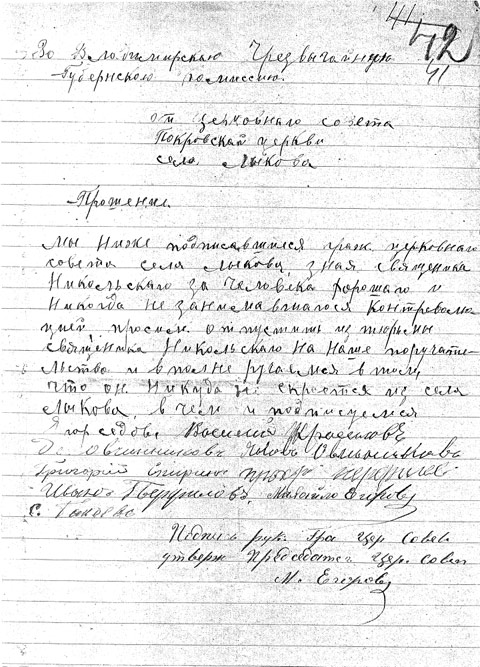 41
42
41
Во Владимирскаю Чрезвычайную
Губернскаю комиссию.
от церковнаго совета
Покровскай церкви
села Лыкова
Прошение
Мы ниже подписавшися граж. церковнаго
совета села Лыкова, зная священика
Никольскаго за человека хорошаго и
никогда не занемавшагося контреволю
цией, просим отпустить из тюрьмы
священика Никольскаго на наше поручате
льство и вполне ругаемся в том,
что он никуда не скроется из села
Лыкова, в чем и подписуемся
Егор Седов Василий Красновъ
Овчинниковъ Яковъ
Григорий Спирин
Иванъ Перфиловъ, Михайло Егоровъ
С.
Подпись рук. Гра Цер. Совет
утверж Председате Цер. Совет
М. Егоровъ